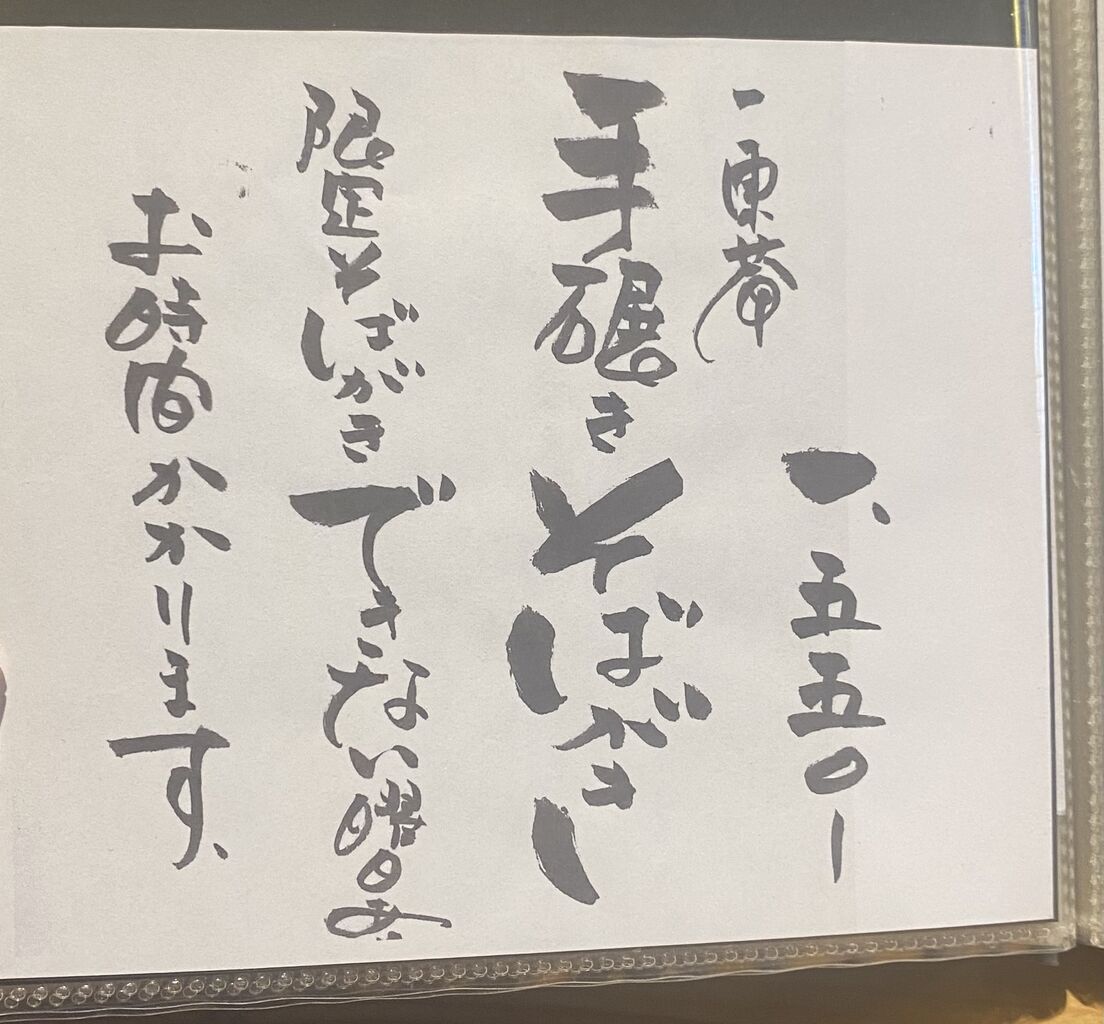 一、五五〇ー
一東菴
手碾きそばがき
限定そばがきできない曜日
お時間かかります、